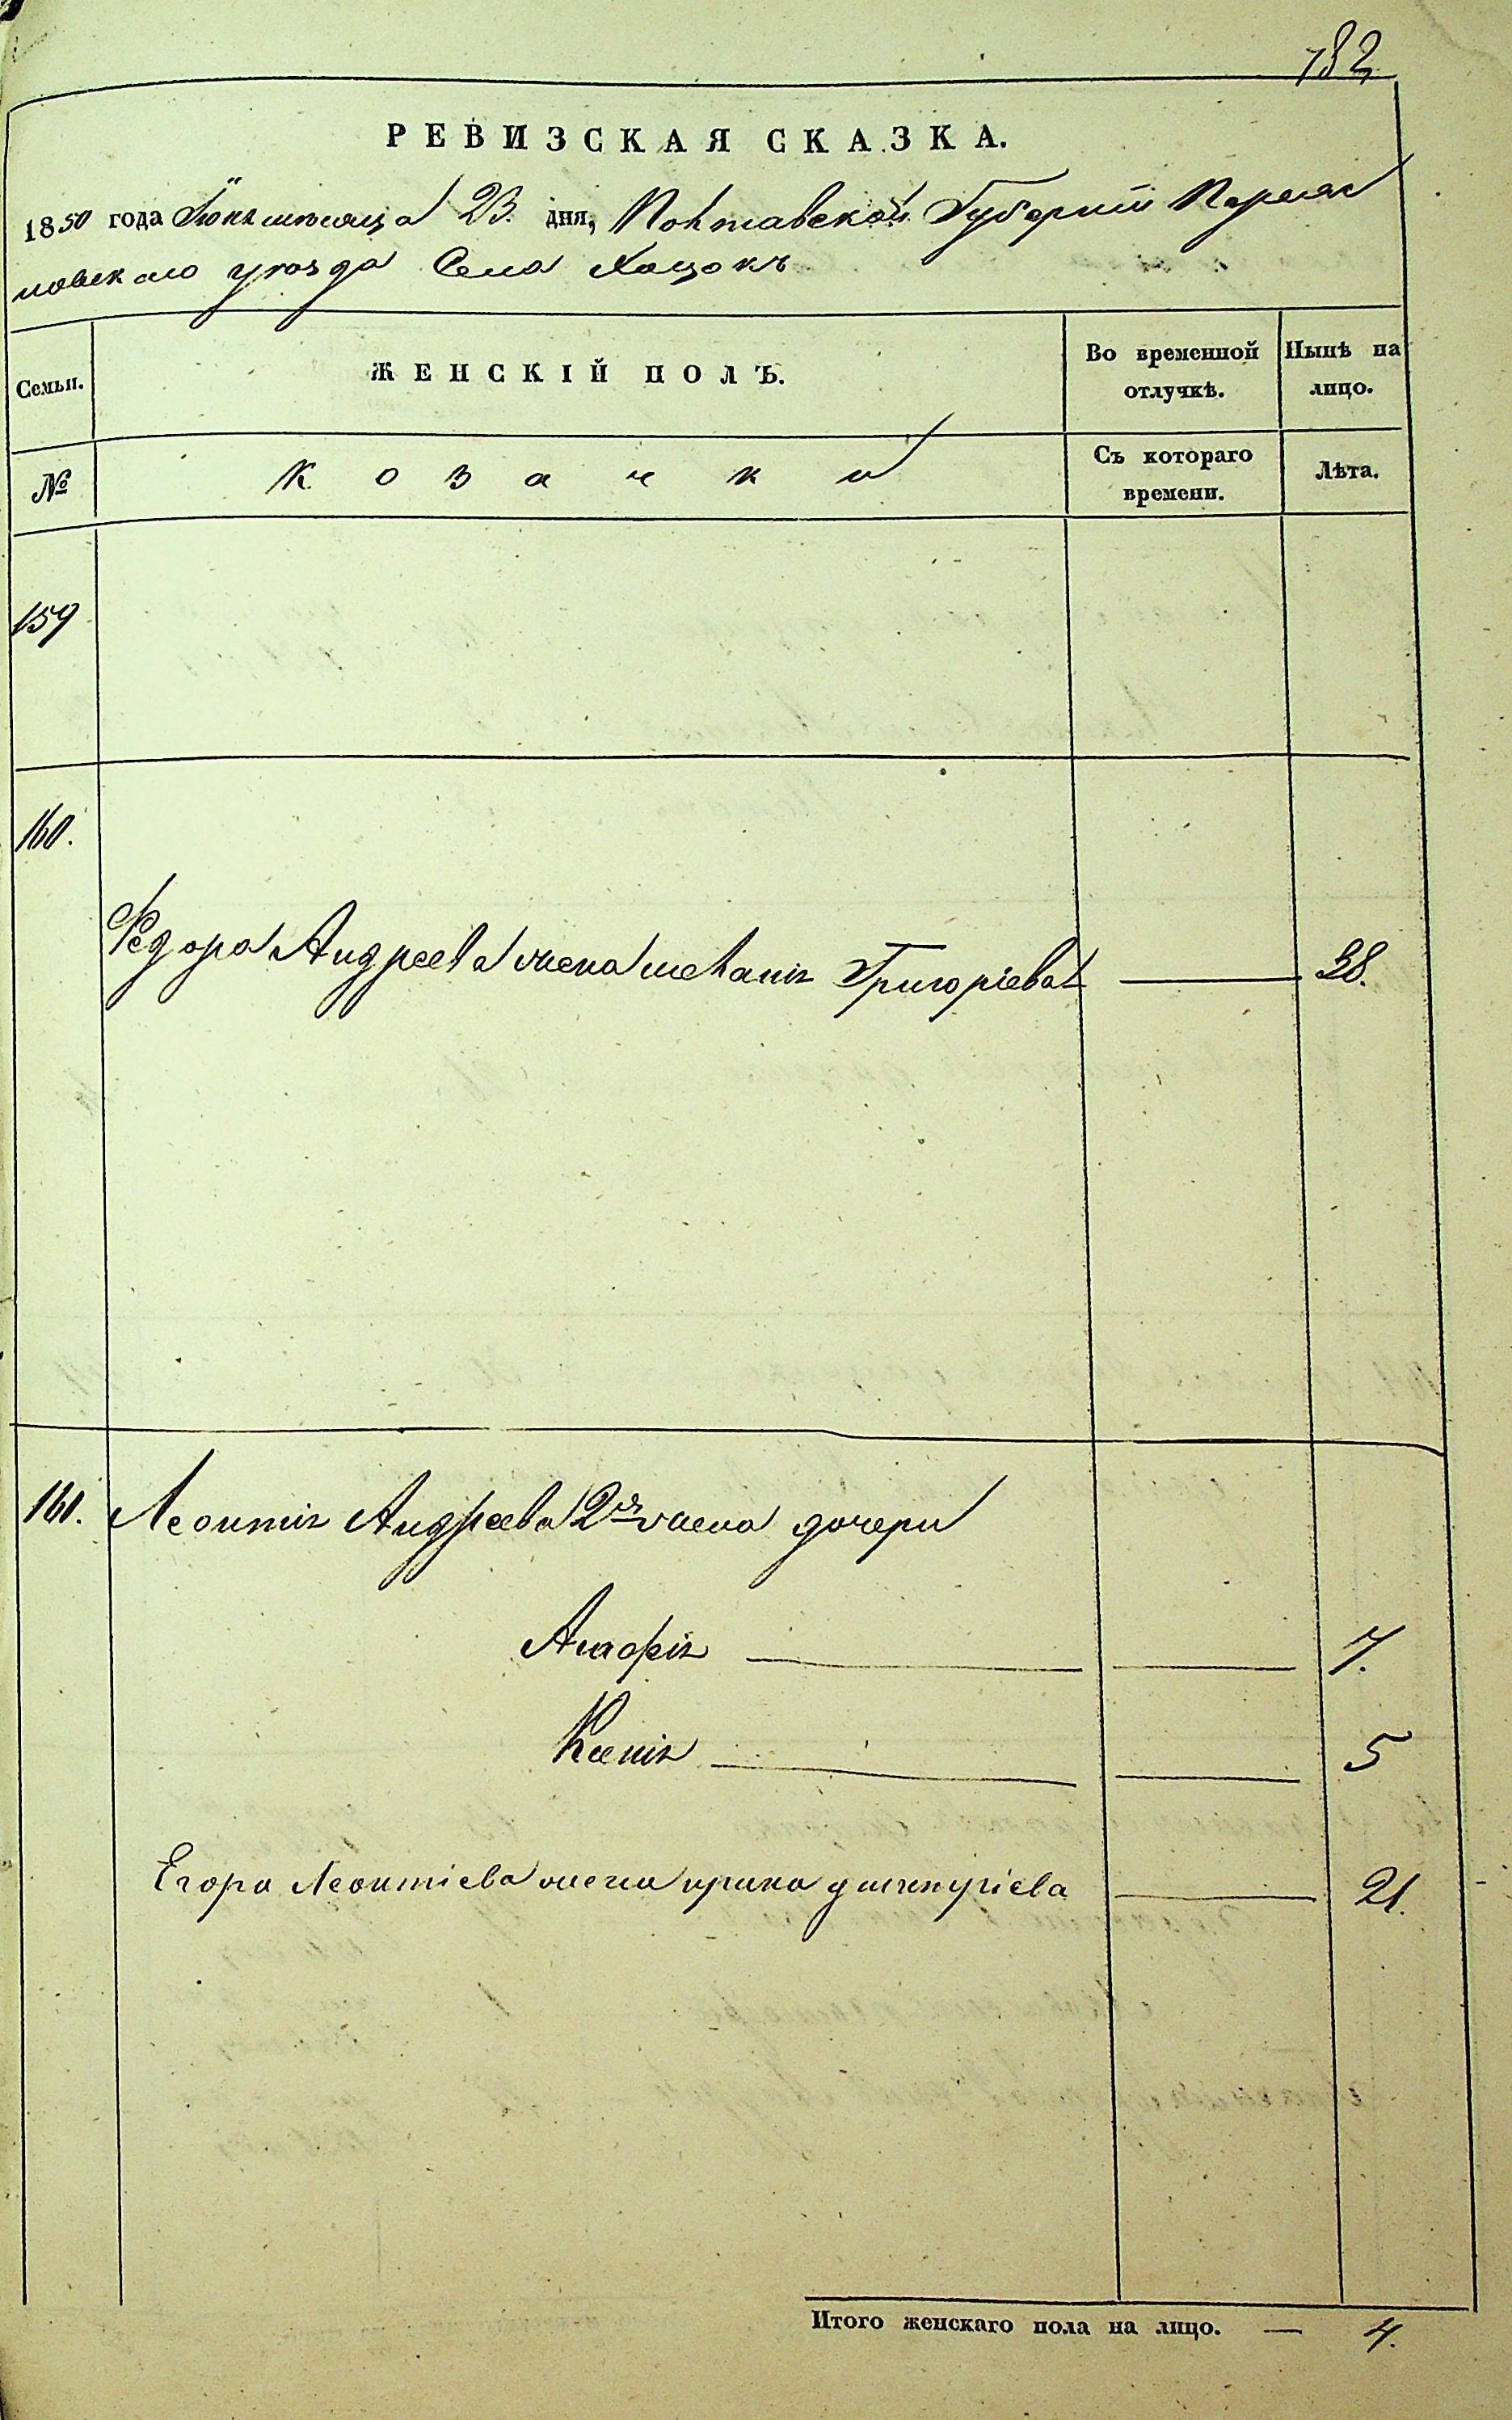 782
РЕВИЗСКАЯ СКАЗКА.
1850 года Іюня мѣсяца 23. дня, Полтавской Губерніи Переяс
ловскаго уѣзда Села Хоцокъ
Семьи.
ЖЕНСКІЙ ПОЛЪ.
Во временной отлучкѣ.
Нынѣ на лицо.
№
Козачки
Съ котораго времени.
Лѣта.
159
160.
Федора Андреева жена Меланія Григоріева 38.
161. Леонтія Андреева 2й жена дочери
Агафія 7.
Ксенія 5
Егора Леонтіева жена Ирина 21.
Итого женскаго пола на лицо. — 4.